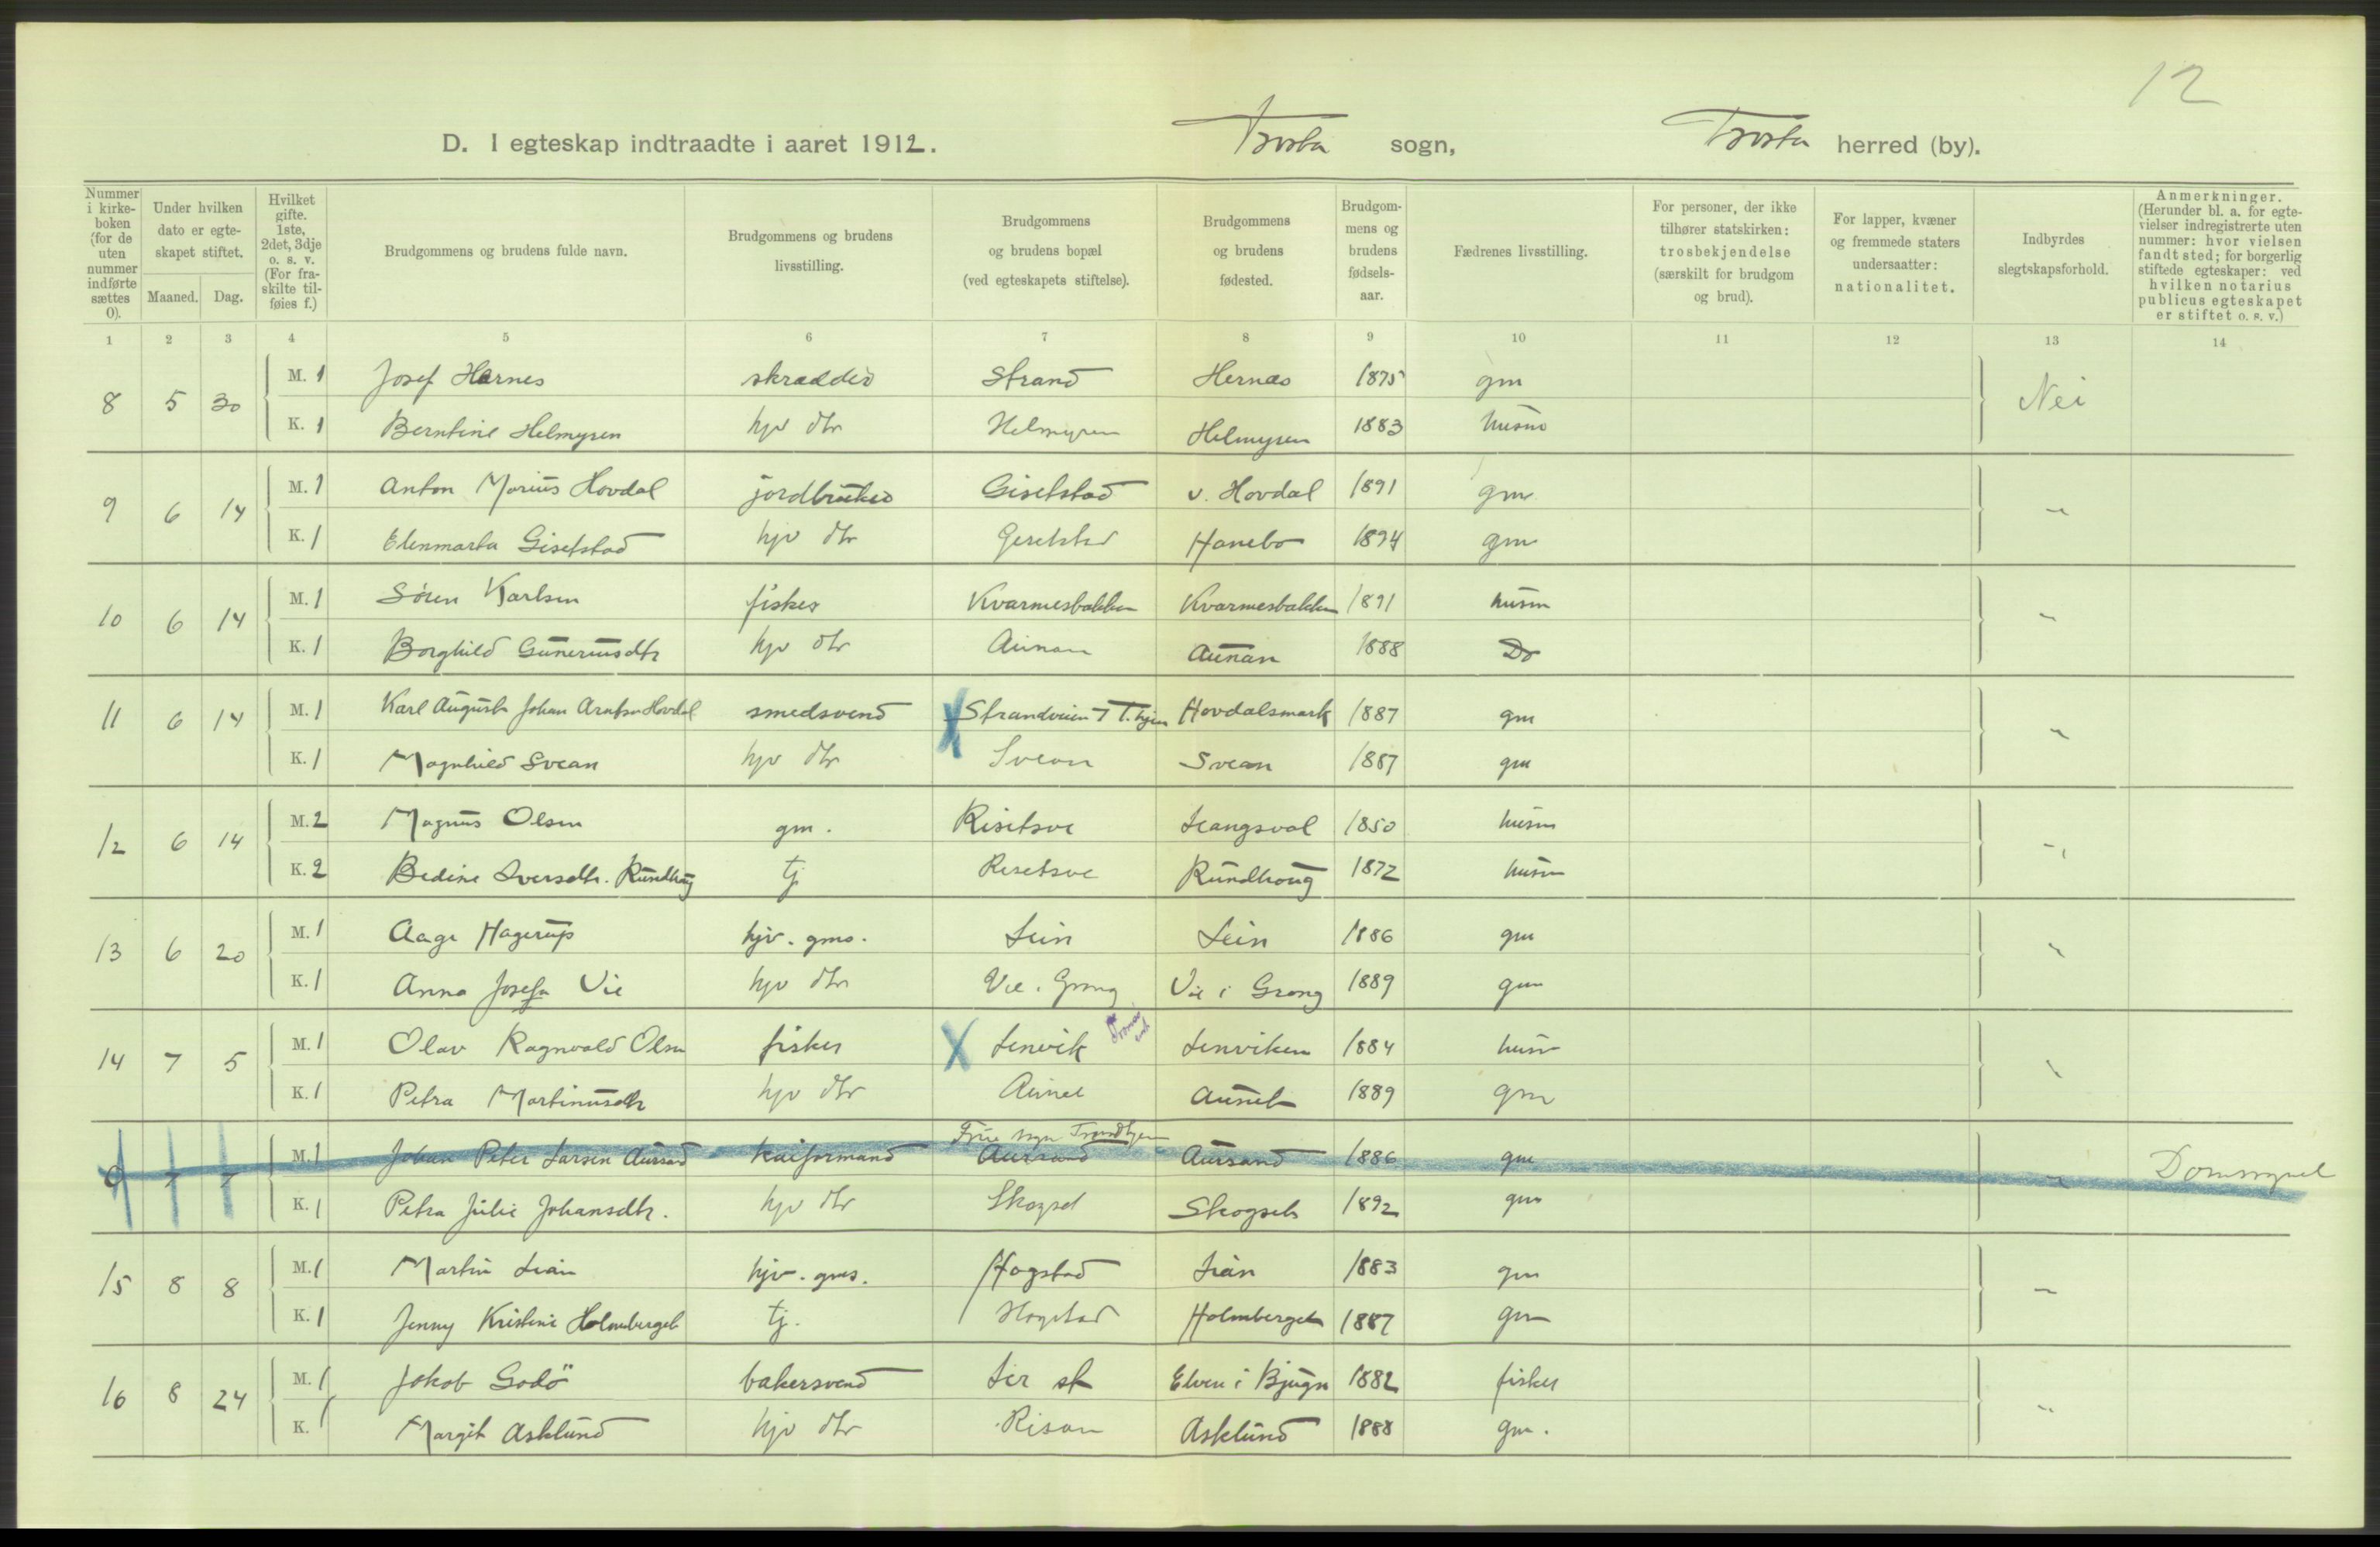 12
D. I egteskap indtraadte i aaret 1912. Frosta sogn, Frosta herred (by).
Nummer i kirke-boken (for de uten nummer indførte sættes 0). Under hvilken dato er egte-skapet stiftet. Maaned. Dag. Hvilket gifte. 1ste, 2det, 3dje o. s. v. (For fra-skilte til-føies f.) Brudgommens og brudens fulde navn. Brudgommens og brudens livsstilling. Brudgommens og brudens bopæl (ved egteskapets stiftelse). Brudgommens og brudens fødested. Brudgom-mens og brudens fødsels-aar. Fædrenes livsstilling. For personer, der ikke tilhører statskirken: trosbekjendelse (særskilt for brudgom og brud). For lapper, kvæner og fremmede staters undersaatter: nationalitet. Indbyrdes slegtskapsforhold. Anmerkninger. (Herunder bl. a. for egte-vielser indregistrerte uten nummer: hvor vielsen fandt sted; for borgerlig stiftede egteskaper: ved hvilken notarius publicus egteskapet er stiftet o. s. v.)
1 2 3 4 5 6 7 8 9 10 11 12 13 14
8 5 30 M. 1 Josef Hernes skrædder Strand Hernes 1875 gm Nei
K. 1 Berntine Helmyren hjv dtr Helmyren Helmyren 1883 husm
9 6 14 M. 1 Anton Marius Hovdal jordbruker Gisetstad v. Hovdal 1891 gm "
K. 1 Elenmarta Gisetstad hjv dtr Gisetstad Hanebo 1894 gm
10 6 14 M. 1 Sören Karlsen fisker Kvarmesbakken Kvarmesbakken 1891 husm "
K. 1 Borghild Guneriusdtr hjv dtr Aunan Aunan 1888 Do
11 6 14 M. 1 Karl August Johan Arntsen Hovdal smedsvend Strandveien 7 T.hjem Hovdalsmark 1887 gm "
K. 1 Magnhild Svean hjv dtr Svean Svean 1887 gm
12 6 14 M. 2 Magnus Olsen gm. Risetsve Leangsval 1850 husm "
K. 2 Bedine Iversdtr. Rundhaug tj Risetsve Rundhoug 1872 husm
13 6 20 M. 1 Aage Hagerup hjv. gms. Lein Lein 1886 gm "
K. 1 Anna Josefa Vie hjv dtr Vie i Grong Vie i Grong 1889 gm
14 7 5 M. 1 Olav Ragnvald Olsen fisker Lenvik Lenviken 1884 husm "
K. 1 Petra Martinusdtr hjv dtr Aunet Aunet 1889 gm
Frue sogn Trondhjem
0 7 7 M. 1 Johan Peter Larsen Aursand kaiformand Aursand Aursand 1886 gm " Domsognet
K. 1 Petra Julie Johansdtr. hjv dtr Skogset Skogset 1892 gm
15 8 8 M. 1 Martin Lian hjv. gms. Hogstad Lian 1883 gm "
K. 1 Jenny Kristine Holmberget tj. Hogstad Holmberget 1887 gm
16 8 24 M. 1 Jakob Godö bakersvend Elven i Bjugn 1882 fisker "
K. 1 Margit Asklund hjv dtr Risan Asklund 1888 gm.